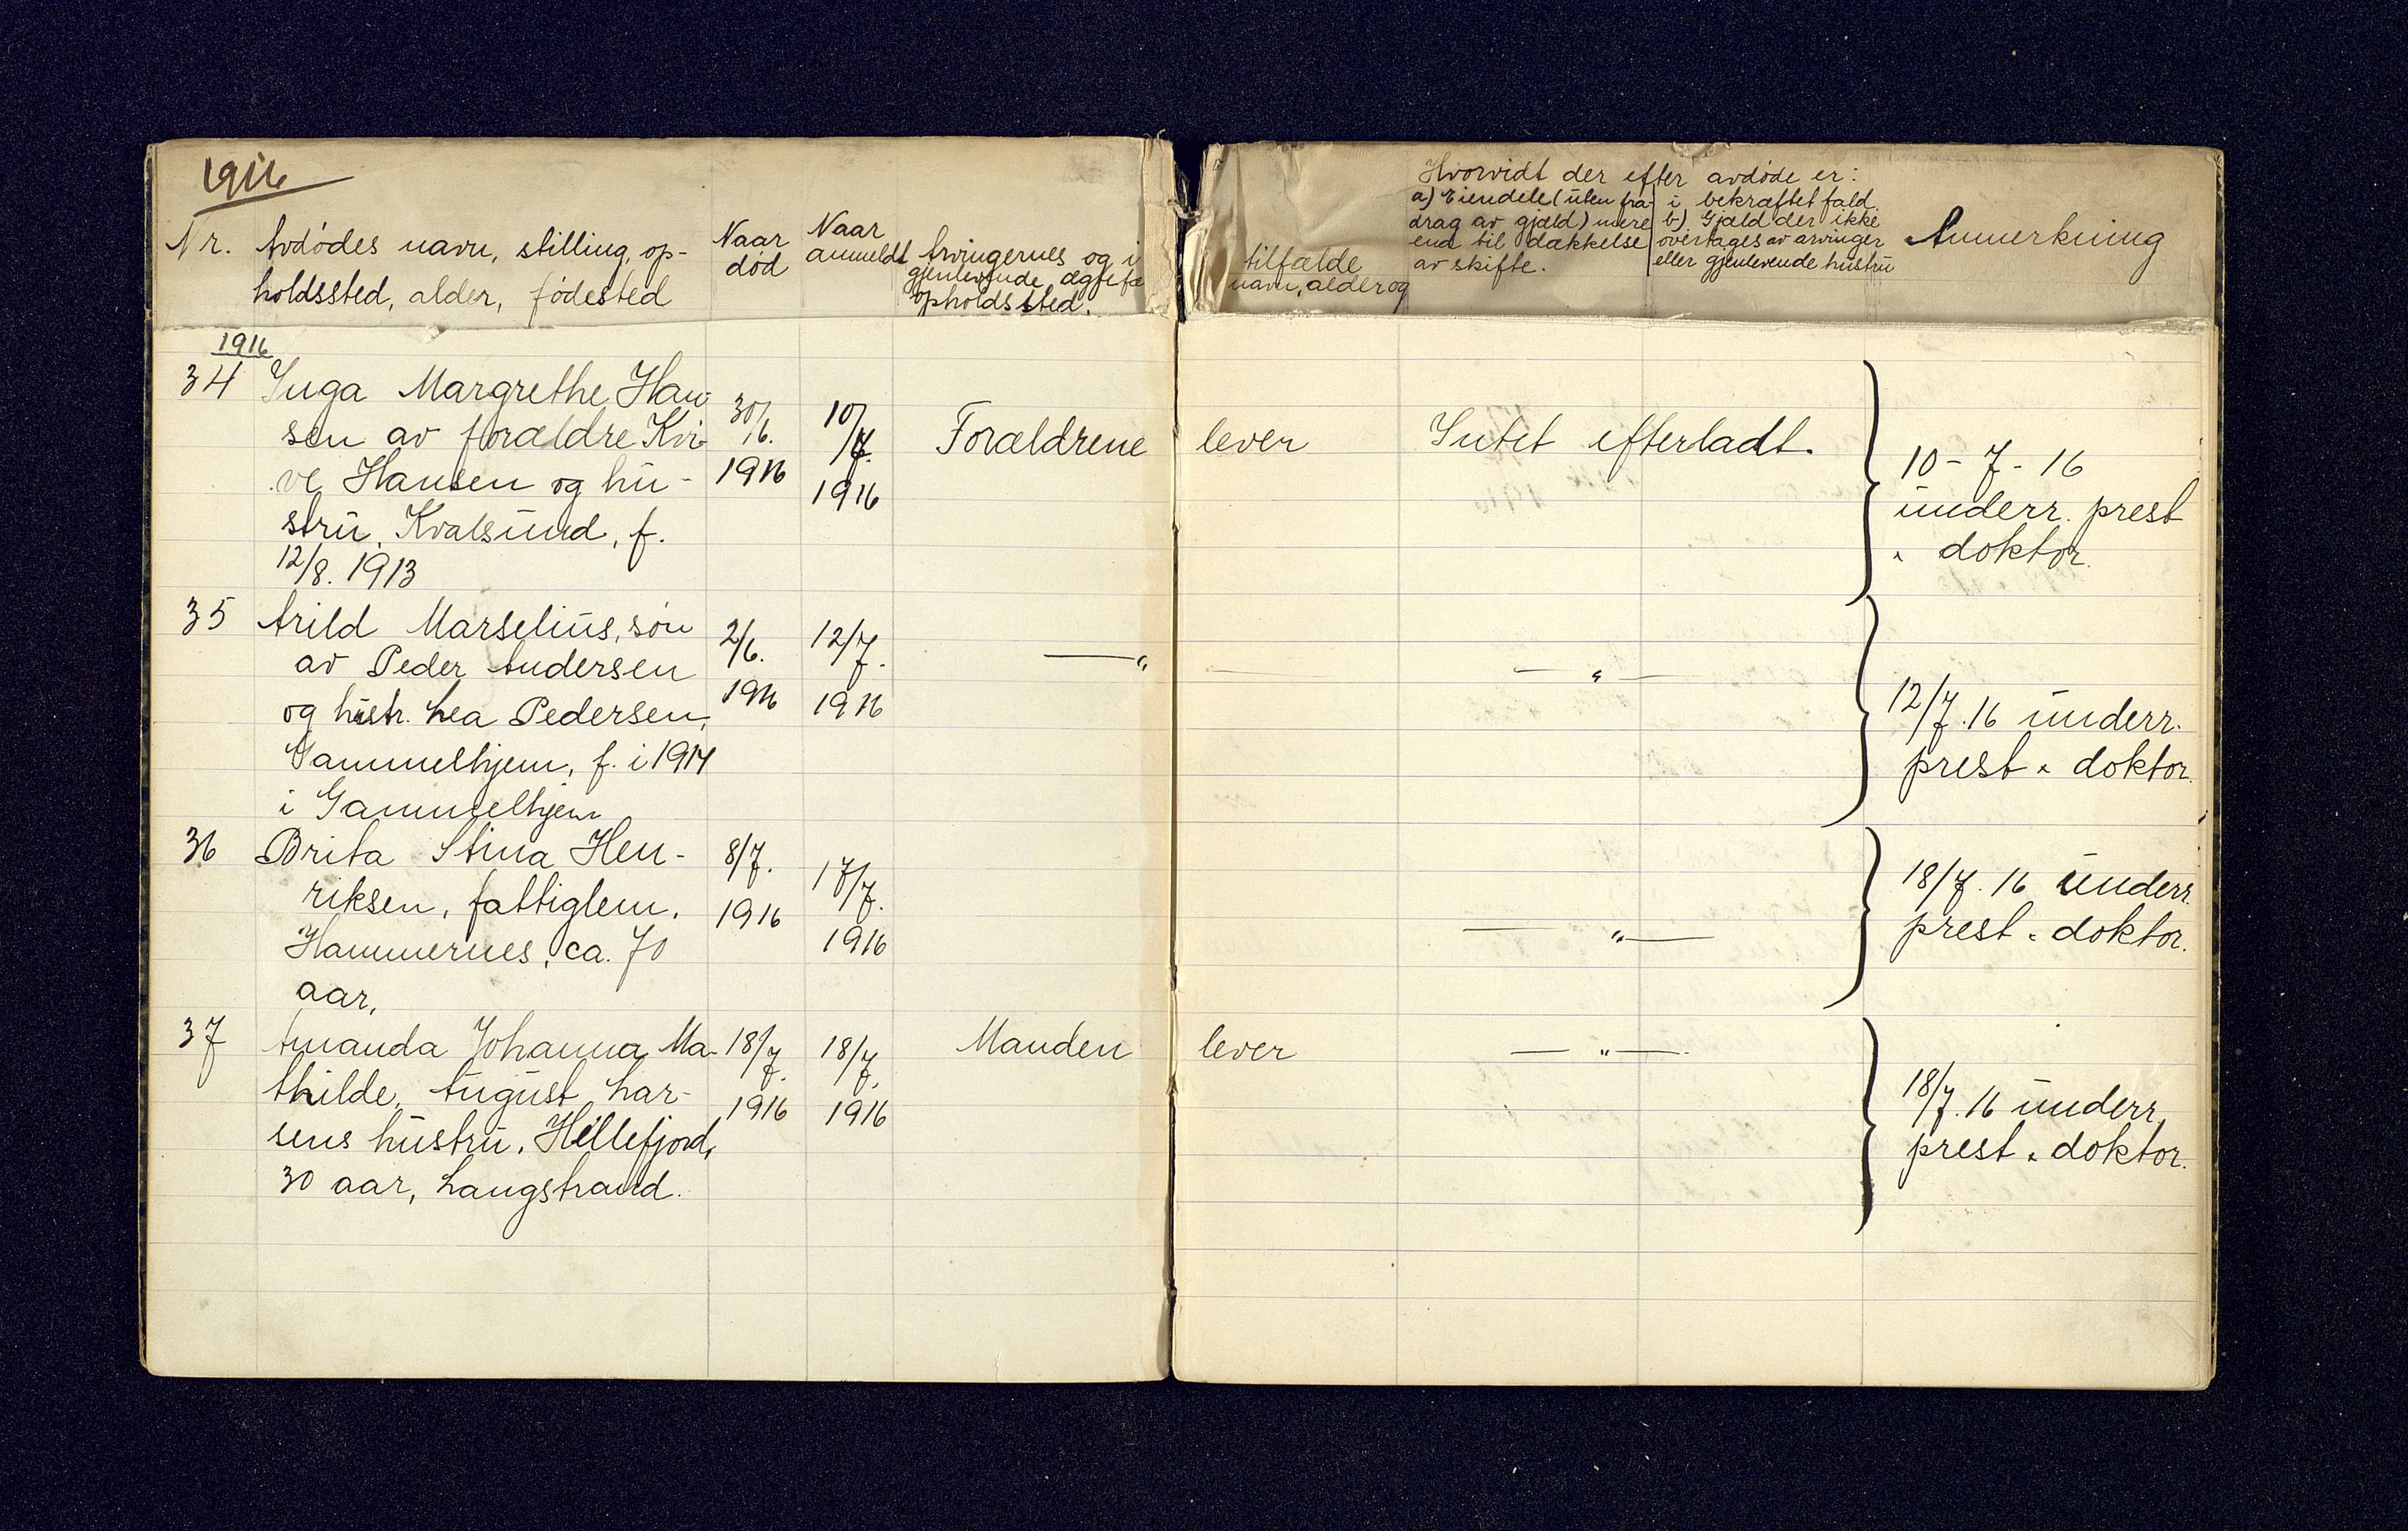 1916
Nr. Avdødes navn, stilling, op-
holdssted, alder, fødested
Naar
død
Naar
anmeldt
Arvingernes og i
gjenlevende ægtefæ
opholdssted.
tilfælde
navn, alder og
Hvorvidt der efter avdøde er:
a) Eiendele (uten fra-
drag av gjæld) mere
end til dækkelse
av skifte.
i bekræftet fald
b) Gjæld der ikke
overtages av arvinger
eller gjenlevende hustru
Anmerkning
1916
34 Inga Margrethe Han-
sen av forældre Kri-
ve Hansen og hu-
stru, Kvalsund, f.
12/8. 1913
30/
16.
1916
10/
/7.
1916
Forældrene lever
Intet efterladt.
10 - 7 - 16
underr. prest
" doktor.
35 Arild Marselius, søn
av Peder Andersen
og hustr. Lea Pedersen,
Gammelhjem, f. i 1914
i Gammelhjem
2/6.
1916
12/7.
1916
— " —
— " —
12/7.16 underr.
prest " doktor.
36 Brita Stina Hen-
riksen, fattiglem,
Hammernes, ca. 70
aar,
8/7.
1916
17/7.
1916
— " —
18/7. 16 underr.
prest " doktor.
37 Amanda Johanna Ma-
thilde, August Lar-
sens hustru, Hillefjord,
30 aar, Langstrand.
18/7.
1916
18/7.
1916
Manden lever
— " —
18/7.16 underr.
prest " doktor.